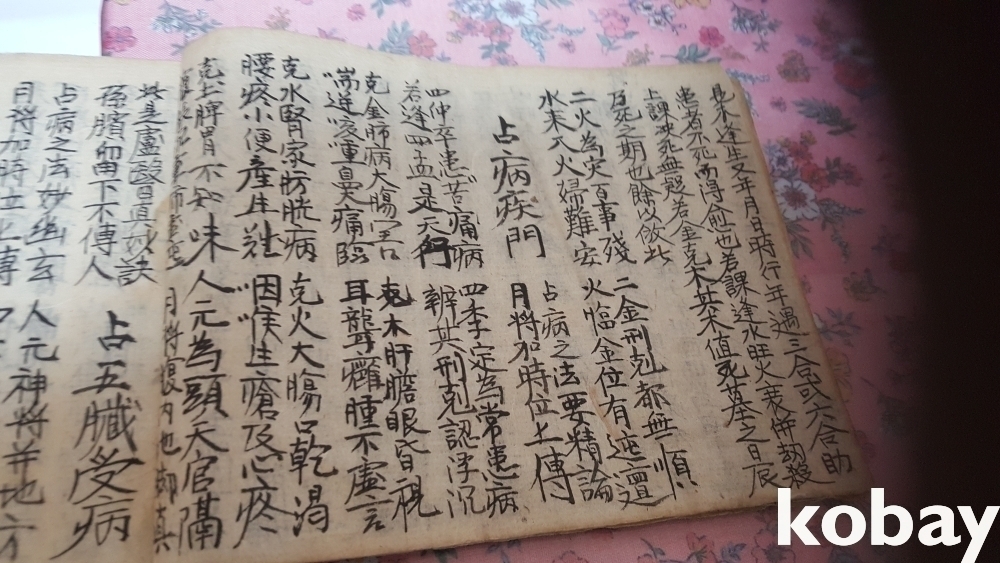 見木逢生又年月日時行年遇三合或六合助
患者不死而得愈也若課逢水旺火衰併劫殺
上課決死無疑若金克木其木值死墓之日辰
乃死之期也餘以倣此
二火為灾百事殘 二金刑剋都無順
水来入火婦難安 火臨金位有迍邅
占病疾門 占病之法要精論
月將加時位上傳
四仲卒患苦痛病 四季定為常患病
若逢四孟是天行 辨其刑剋認浮沉
克金肺病大腸宮 克木肝膽眼昏視
喘逆咳嗽鼻痛臨 耳聾癰腫不虛言
克水腎家膀胱病 克火大腸口乾渴
腰疼小便産生 因喉生瘡及心疼
克土脾胃不知味 人元為頭天官隔
月將腹内也
此是盧毉真妙訣
孫臏留下不傳人 占五臟受病
占病之法妙幽玄 人元神將并地
月將加時位上傳
kobay